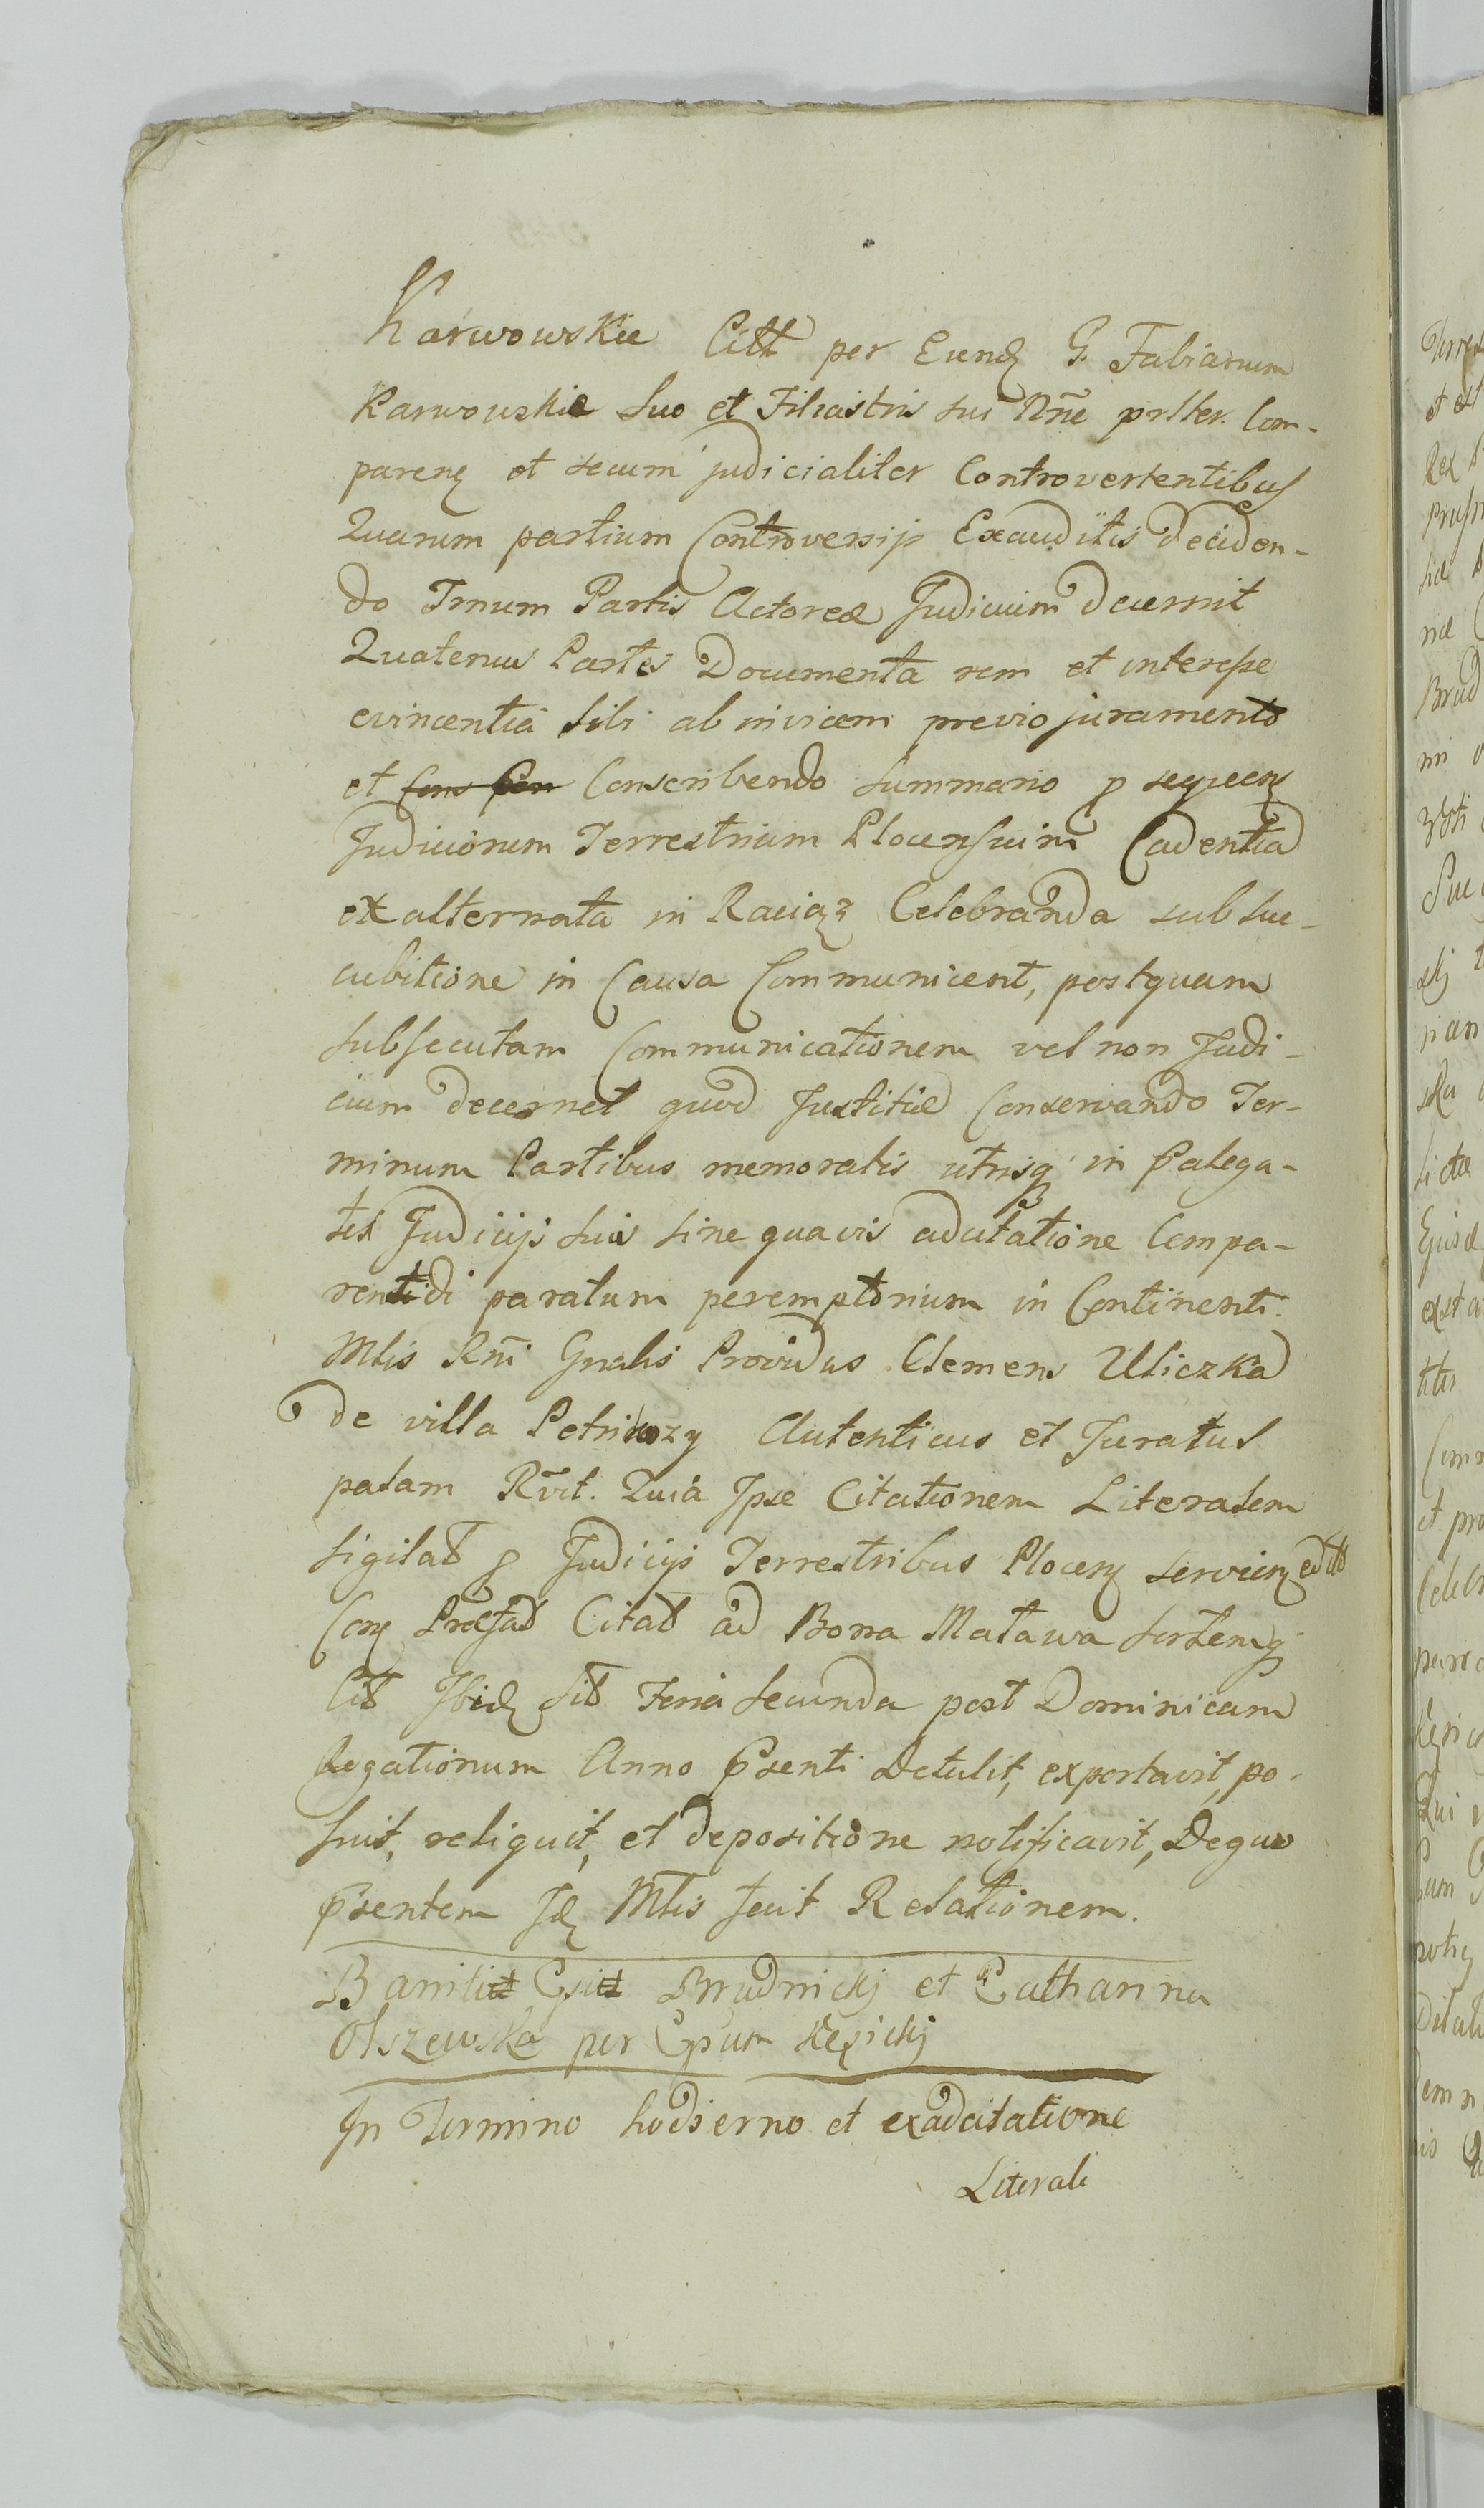 Karwowskie Citt per Eund G. Fabianum
Karwowskie suo et Filiastris sui Nñe prltter. Com-
parenz et secum judicialiter Controvertentibus
Quarum partium Controversijs Exauditis deciden-
do Trnum Partis Actoreæ Judicium decernit
Quatenus Partes Documenta rem et interesse
evincentia sibi ab invicem previo juramento
et Conscribendo summario p sequenz
Judiciorum Terrestrium Plocensium Cadentia
ex alternata in Raciąz Celebranda sub suc-
cubitione in Causa Communicent, postquam
subsecutam Communicationem vel non Judi-
cium decernet quod Justitiæ Conservando Ter-
minum Partibus memoratis utrisq in Palega-
tis Judicijs suis sine quavis adcitatione Compa-
rendi paratum peremptorium in Continenti.
Mtis Rñi Gnalis Providus Clemens Uliczka
de villa Petrikozy Autenticus et Juratus
palam Rvit. Quia Ipse Citationem Literalem
sigilat p Judicijs Terrestribus Plocenz servienz edit
Conz Præfat Citat ad Bona Malawa sortemq
Cit Ibid sit Feria secunda post Dominicam
Rogationum Anno Psenti Detulit, exportavit, po-
suit, reliquit, et depositione notificavit, Dequo
Psentem Id Mtis fecit Relationem.
Banitit Gsit Brudnickj et Catharina
Olszewska per Gsum Kęsickj
In Termino hodierno et exadcitatione
Literali